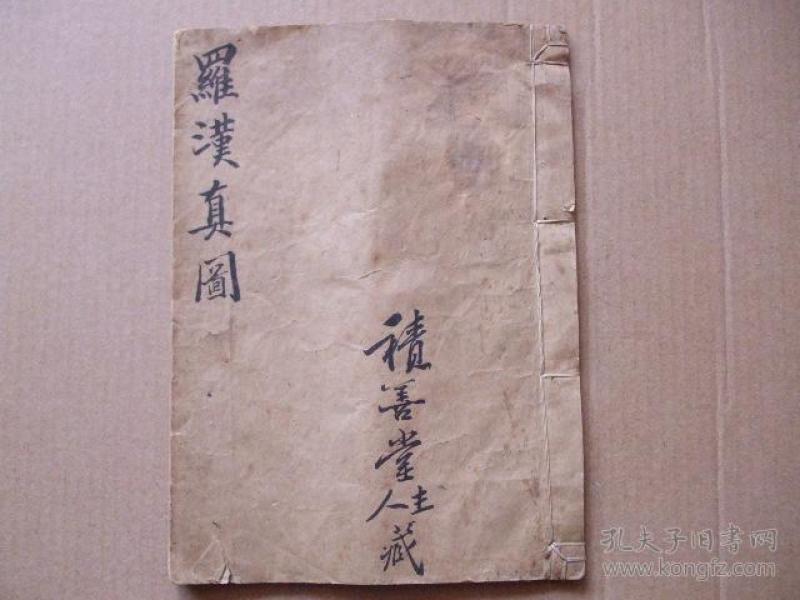 羅漢真圖
積善堂主人藏
孔夫子旧书网
www.kongfz.com